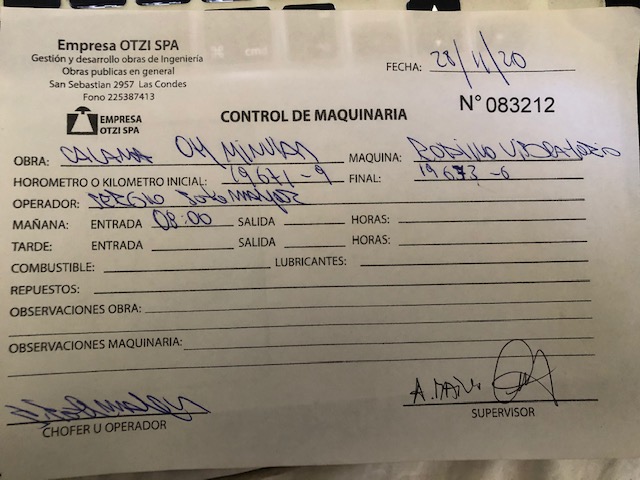 Empresa OTZI SPA
Gestión y desarrollo obras de Ingeniería
Obras publicas en general
San Sebastian 2957 Las Condes
Fono 225387413
FECHA: 28/11/20
EMPRESA
OTZI SPA
CONTROL DE MAQUINARIA
N° 083212
OBRA: CALAMA OHL MAQUINA: RODILLO VIBRATORIO
HOROMETRO O KILOMETRO INICIAL: 19671-9 FINAL: 19673-6
OPERADOR: SERGIO SOTOMAYOR
MAÑANA: ENTRADA 08:00 SALIDA HORAS:
TARDE: ENTRADA SALIDA HORAS:
COMBUSTIBLE: LUBRICANTES:
REPUESTOS:
OBSERVACIONES OBRA:
OBSERVACIONES MAQUINARIA:
CHOFER U OPERADOR
SUPERVISOR